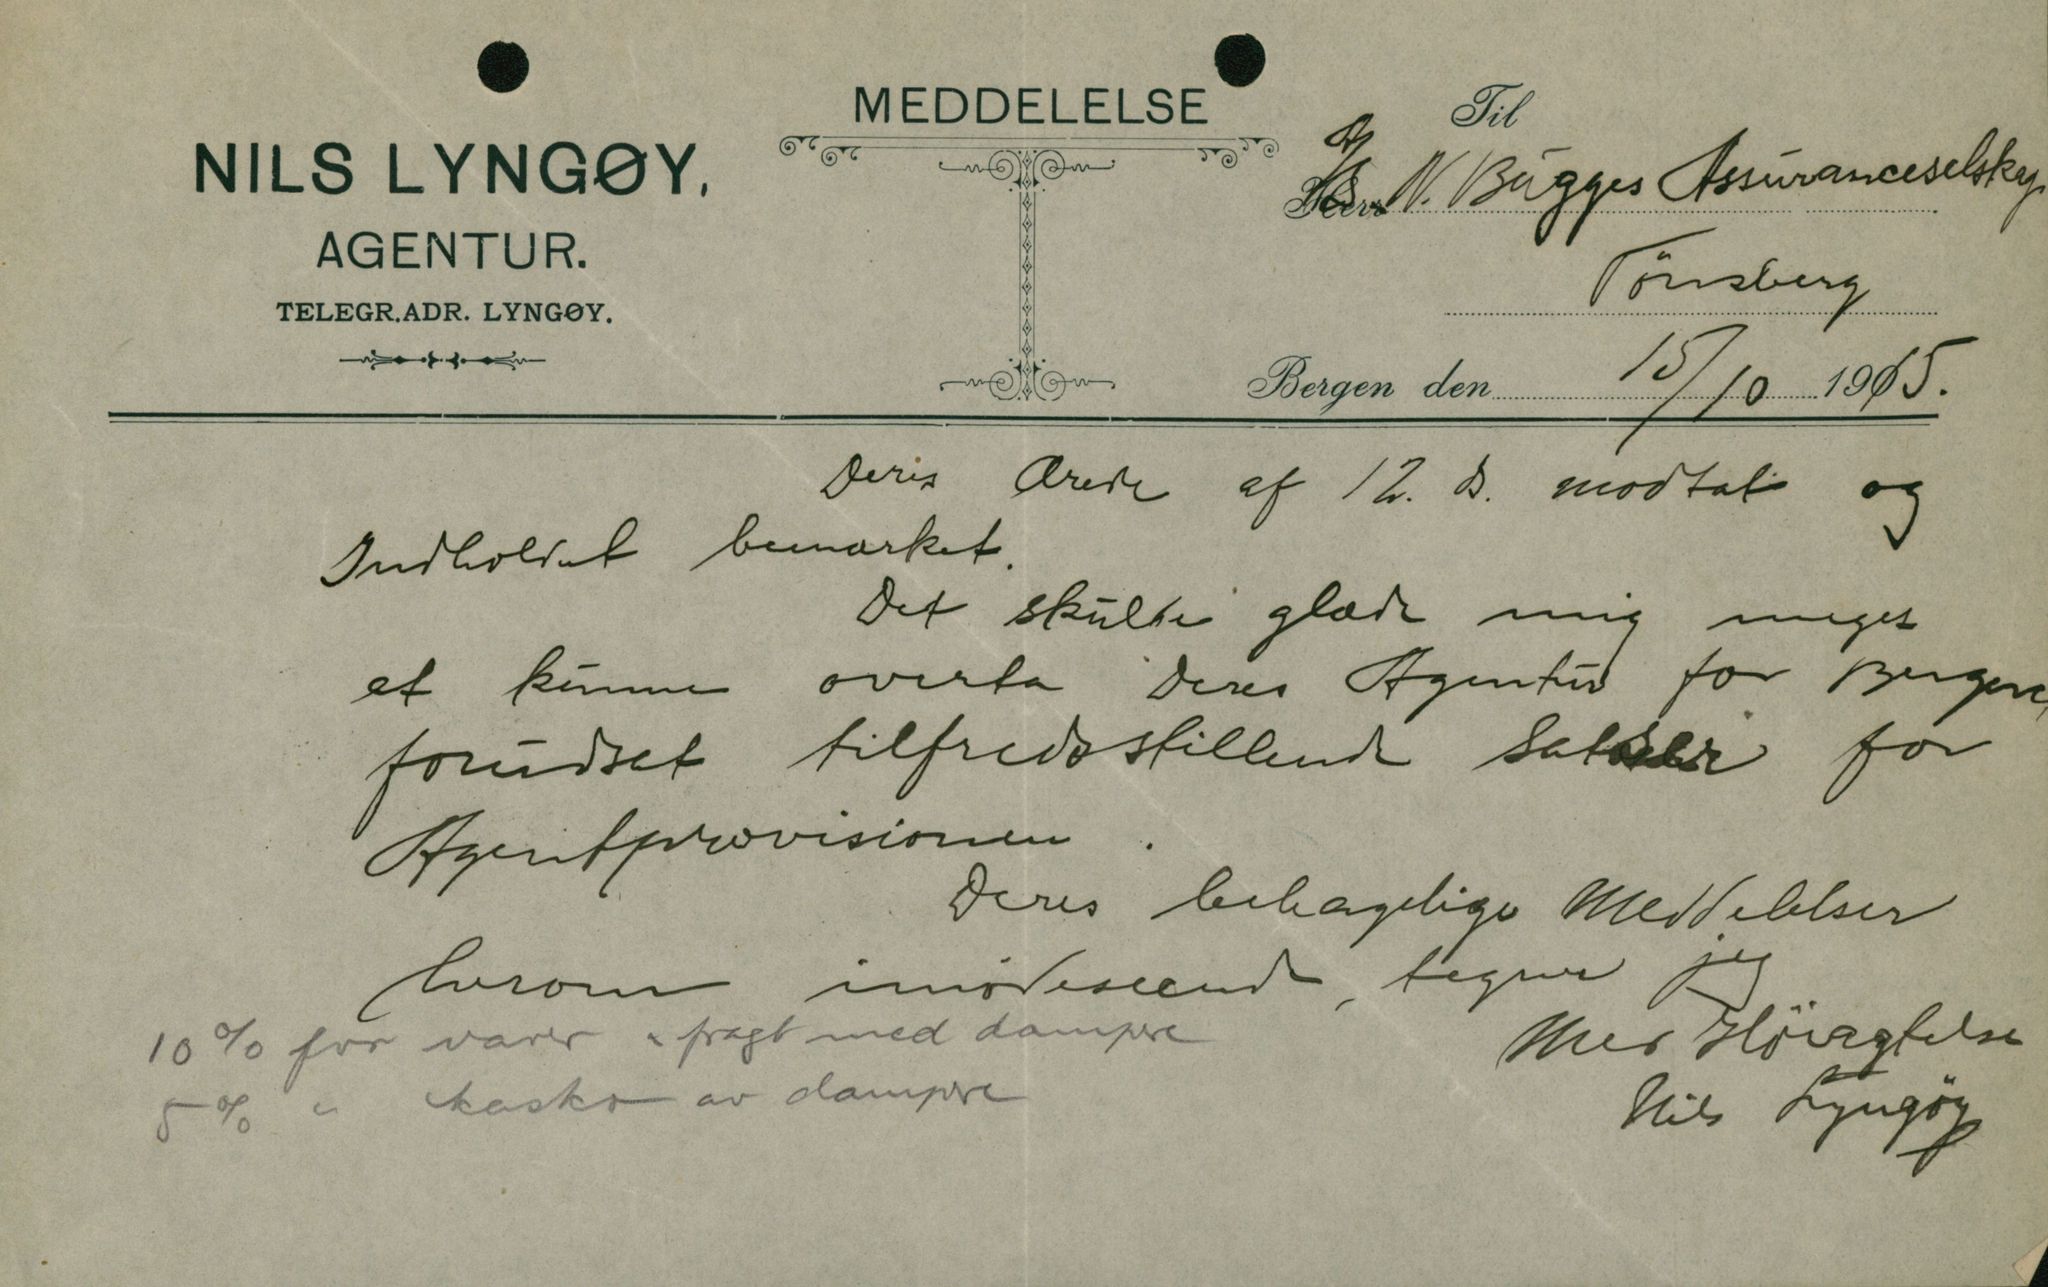 NILS LYNGØY,
AGENTUR.
TELEGR.ADR. LYNGØY.
MEDDELELSE
Til
Herr A/S N. Bugges Assuranceselskap
Tönsberg
Bergen den 15/10 1915.
Deres Ærede af 12. ds. modtat og
Indholdet bemærket.
Det skulde glæde mig meget
at kunne overta Deres Agentur for Bergen,
forudsat tilfredsstillende Satser for
Agentprovisionen.
Deres behagelige Meddelelser
herom imødeseende, tegner jeg
Med Höiagtelse
Nils Lyngöy
10 % for varer & fragt med dampere
5 % " kasko av dampere